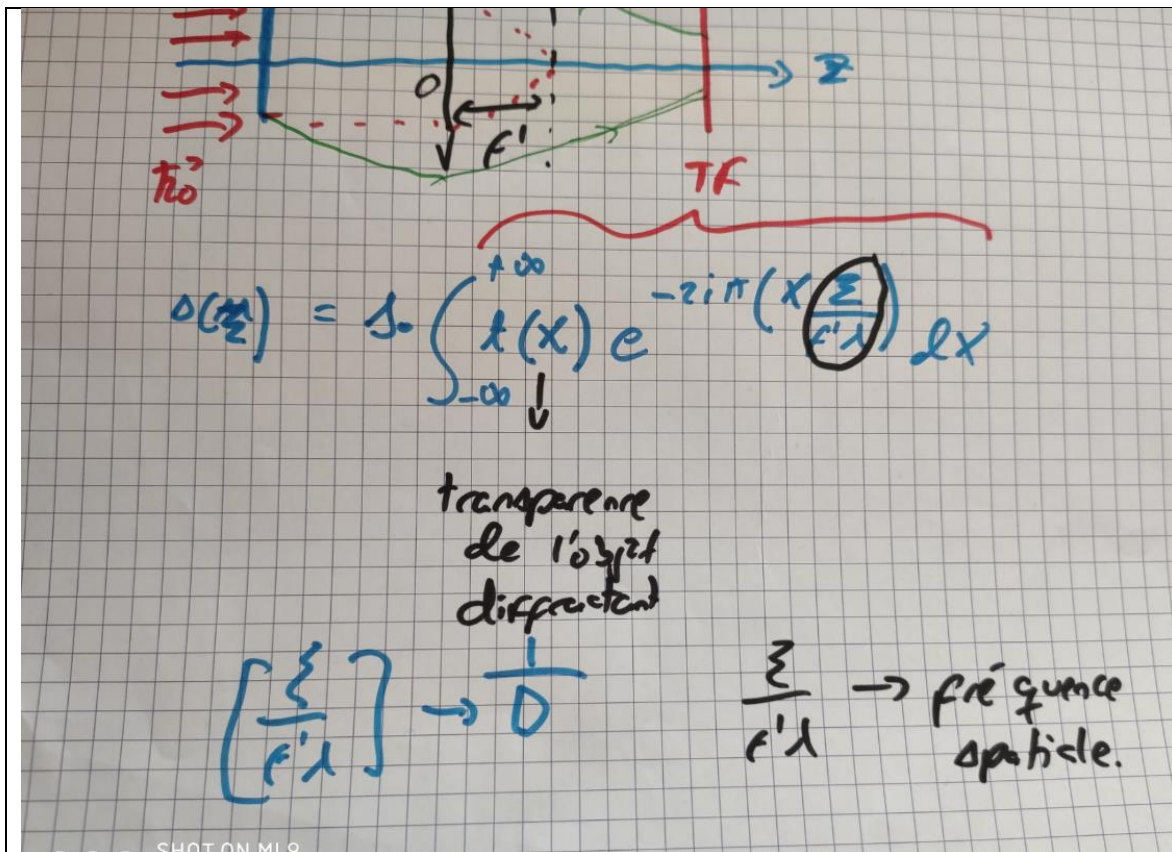 z
O
f'
k₀
TF
s(ξ) = s₀ ∫₋∞^+∞ t(X) e^-2iπ(X ξ/f'λ) dX
transparence
de l'objet
diffractant
[ξ/f'λ] → 1/D
ξ/f'λ → fréquence
spatiale.
SHOT ON MI 9